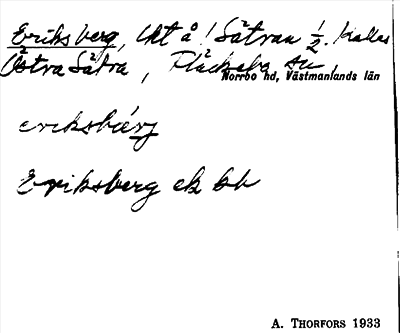 Eriksberg, lht å Sätran ½. Kallas
Östra Sätra, Fläckebo sn,
Norrbo hd, Västmanlands län
eriksbärj
Eriksberg ek bb
A. THORFORS 1933